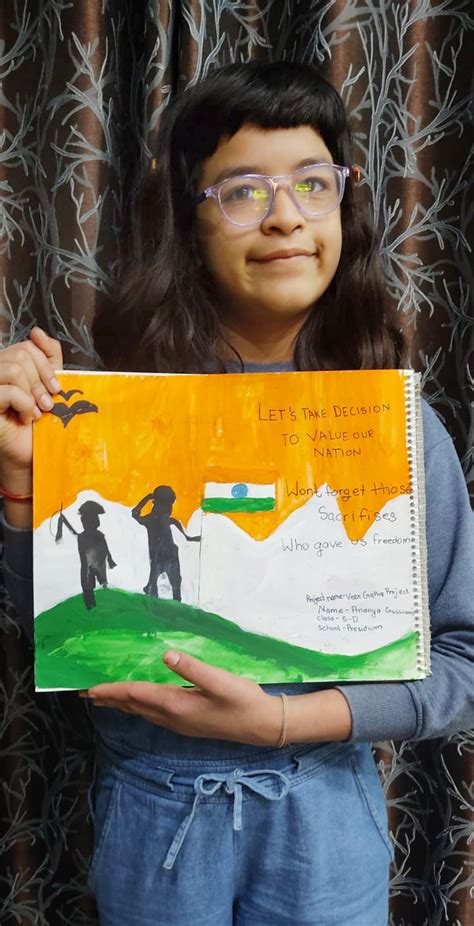 LET'S TAKE DECISION
TO VALUE OUR
NATION
Wont forget those
Sacrifises
Who gave us freedom
Project name- Veer Gatha Project
Name- Ananya Goswami
Class- 5-D
School- Presidium